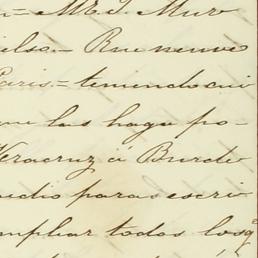 = Mr. J. Mur
ilse.= Rue neuve
Paris.= teniendo cui
que las haga po-
Veracruz á Burde
udio para escri
mpliar todos los q.